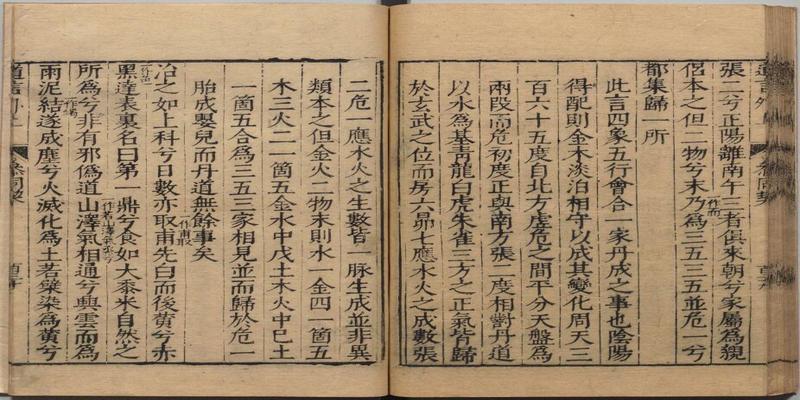 張二兮正陽離南午三者俱來朝兮家屬為親
侶本之但二物兮末乃為三五三五並危一兮
都集歸一所
此言四象五行會合一家丹成之事也陰陽
得配則金木淡泊相守以成其變化周天三
百六十五度自北方虛危之間平分天盤為
兩段而危初度正與南方張二度相對丹道
以水為基青龍白虎朱雀三方之正氣皆歸
於玄武之位而房六昴七應水火之成數張
二危一應水火之生數皆一脉生成並非異
類本之但金火二物末則水一金四一箇五
木三火二一箇五金水中戊土木火中巳土
一箇五合為三五三家相見並而歸於危一
胎成嬰兒而丹道無餘事矣
冶之如上科兮日數亦取甫先白而後黃兮赤
黑達表裏名曰第一鼎兮食如大黍米自然之
所為兮非有邪偽道山澤氣相通兮興雲而為
雨泥結遂成塵兮火滅化為土若糵染為黃兮